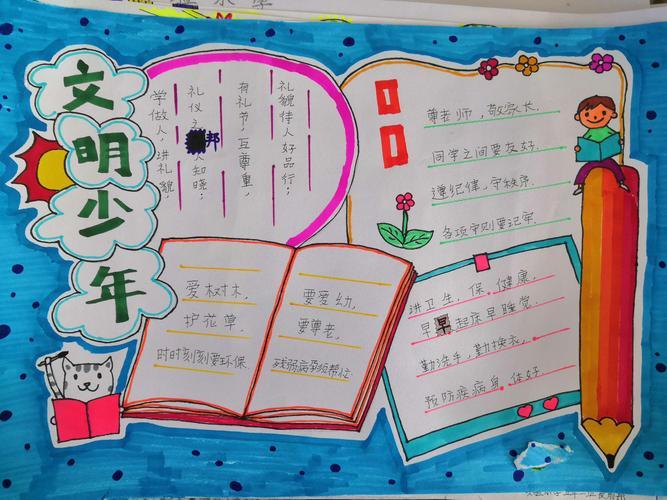 文明少年
学做人,讲礼貌,
礼仪之邦人知晓;
有礼节,互尊重,
礼貌待人好品行;
尊老师,敬家长.
同学之间要友好.
遵纪律,守秩序.
各项守则要记牢.
爱树木,
护花草,
时时刻刻要环保.
要爱幼,
要尊老,
残弱病孕频帮忙.
讲卫生,保健康,
早起床早睡觉.
勤洗手,勤换衣,
预防疾病身体好.